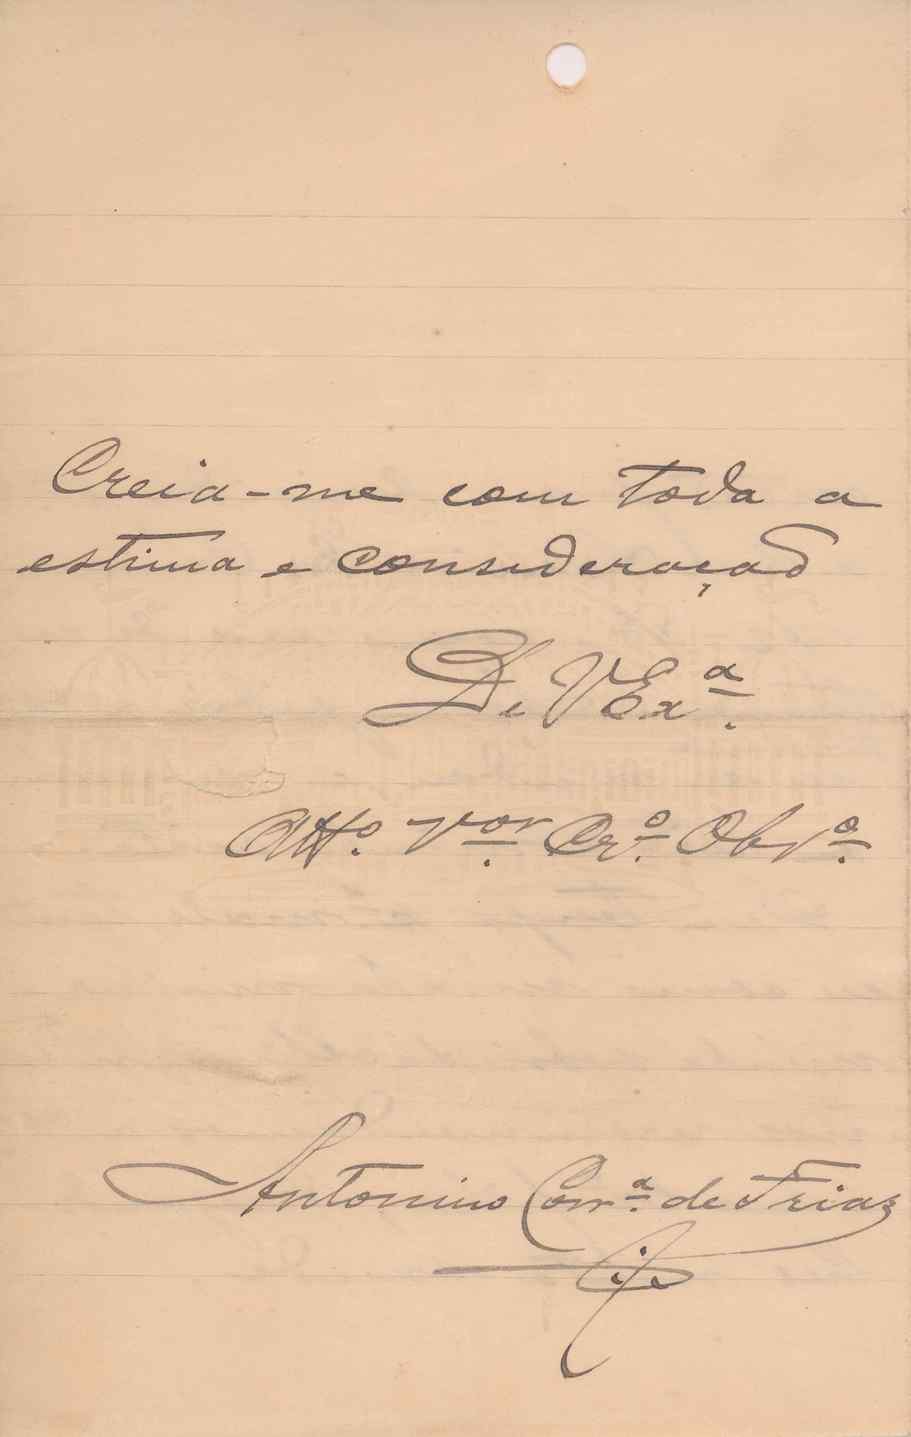 Creia-me com toda a
estima e consideração
De V Exª.
Attº. Vor. Crº. Obrº.
Antonino Corrª. de Frias